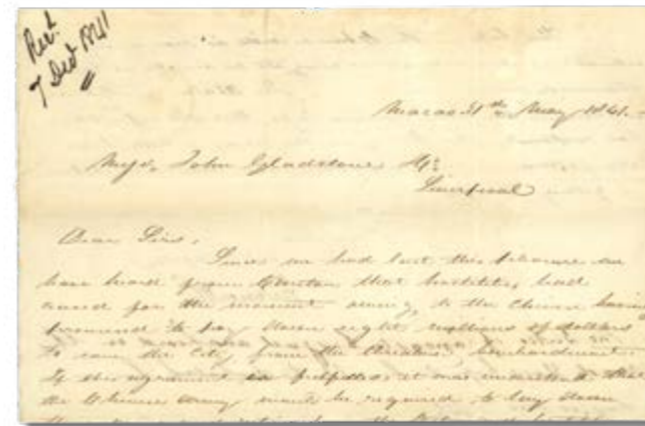 Recd
7 Decr 1841
Macao 31st May 1841.
Messrs. John Gladstone & Co
Liverpool
Dear Sirs,
Since we had last this pleasure we
have heard from Canton that hostilities had
ceased for the moment owing to the Chinese having
promised to pay down eight millions of dollars
to save the City from the
If this agreement is fulfilled, it was understood that
the Chinese army would be required to lay down